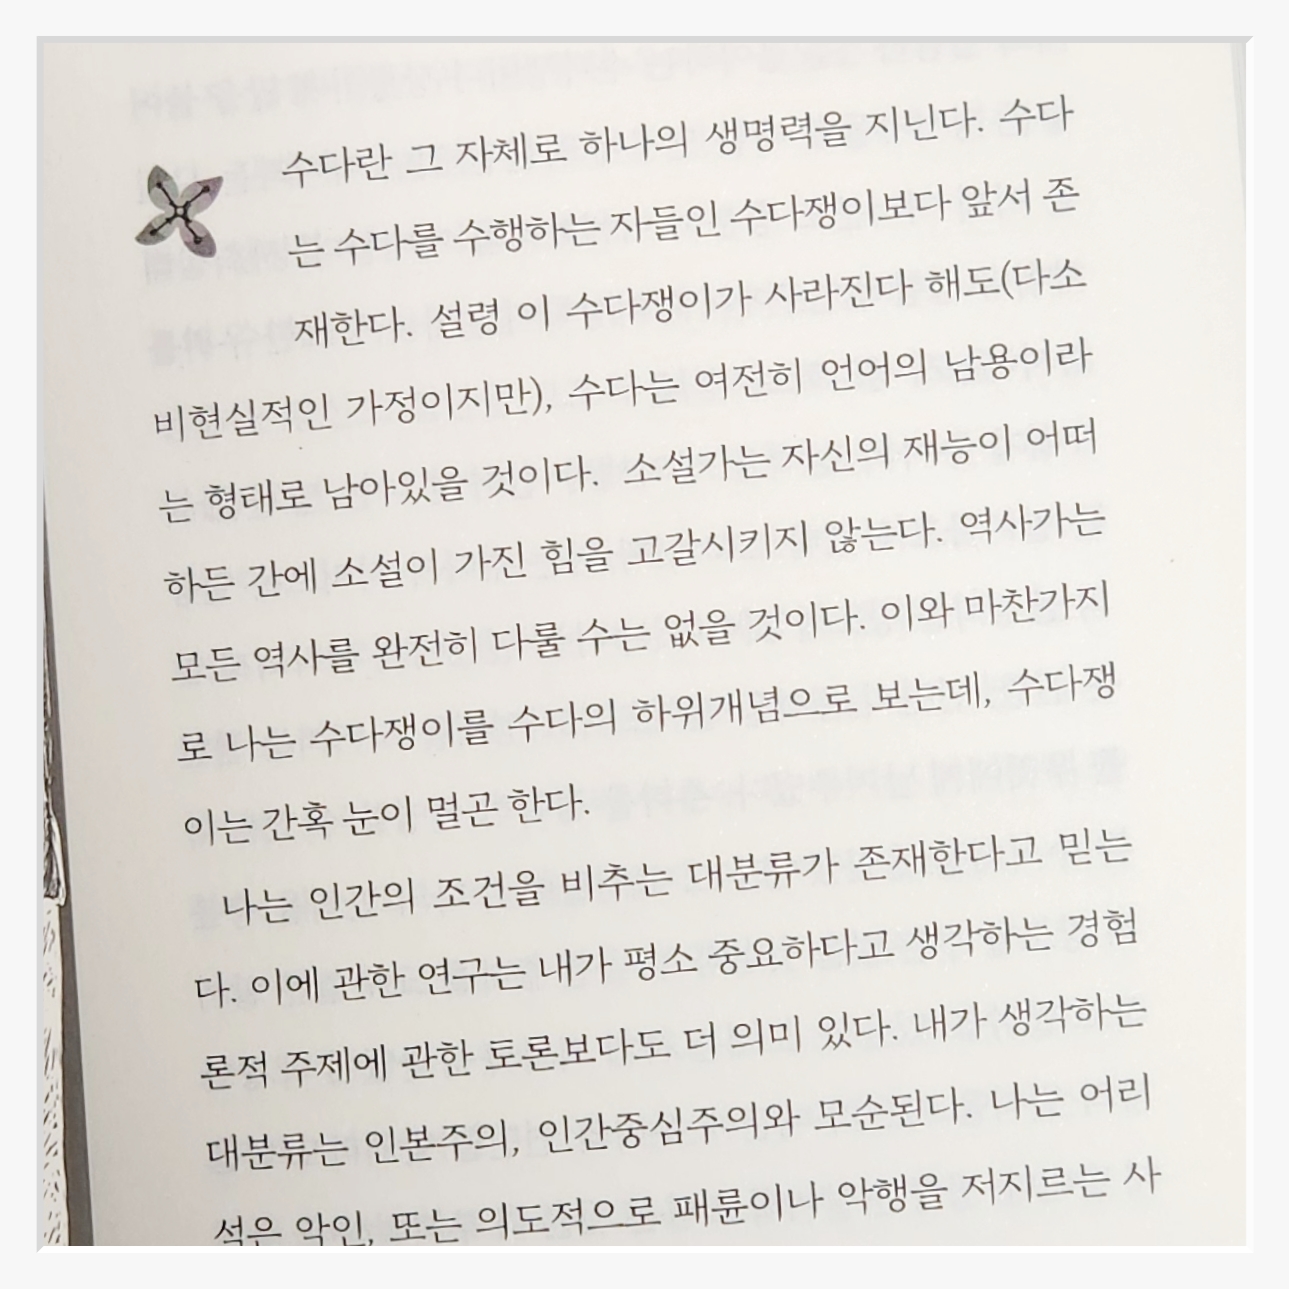 수다란 그 자체로 하나의 생명력을 지닌다. 수다
는 수다를 수행하는 자들인 수다쟁이보다 앞서 존
재한다. 설령 이 수다쟁이가 사라진다 해도(다소
비현실적인 가정이지만), 수다는 여전히 언어의 남용이라
는 형태로 남아있을 것이다. 소설가는 자신의 재능이 어떠
하든 간에 소설이 가진 힘을 고갈시키지 않는다. 역사가는
모든 역사를 완전히 다룰 수는 없을 것이다. 이와 마찬가지
로 나는 수다쟁이를 수다의 하위개념으로 보는데, 수다쟁
이는 간혹 눈이 멀곤 한다.
나는 인간의 조건을 비추는 대분류가 존재한다고 믿는
다. 이에 관한 연구는 내가 평소 중요하다고 생각하는 경험
론적 주제에 관한 토론보다도 더 의미 있다. 내가 생각하는
대분류는 인본주의, 인간중심주의와 모순된다. 나는 어리
석은 악인, 또는 의도적으로 패륜이나 악행을 저지르는 사